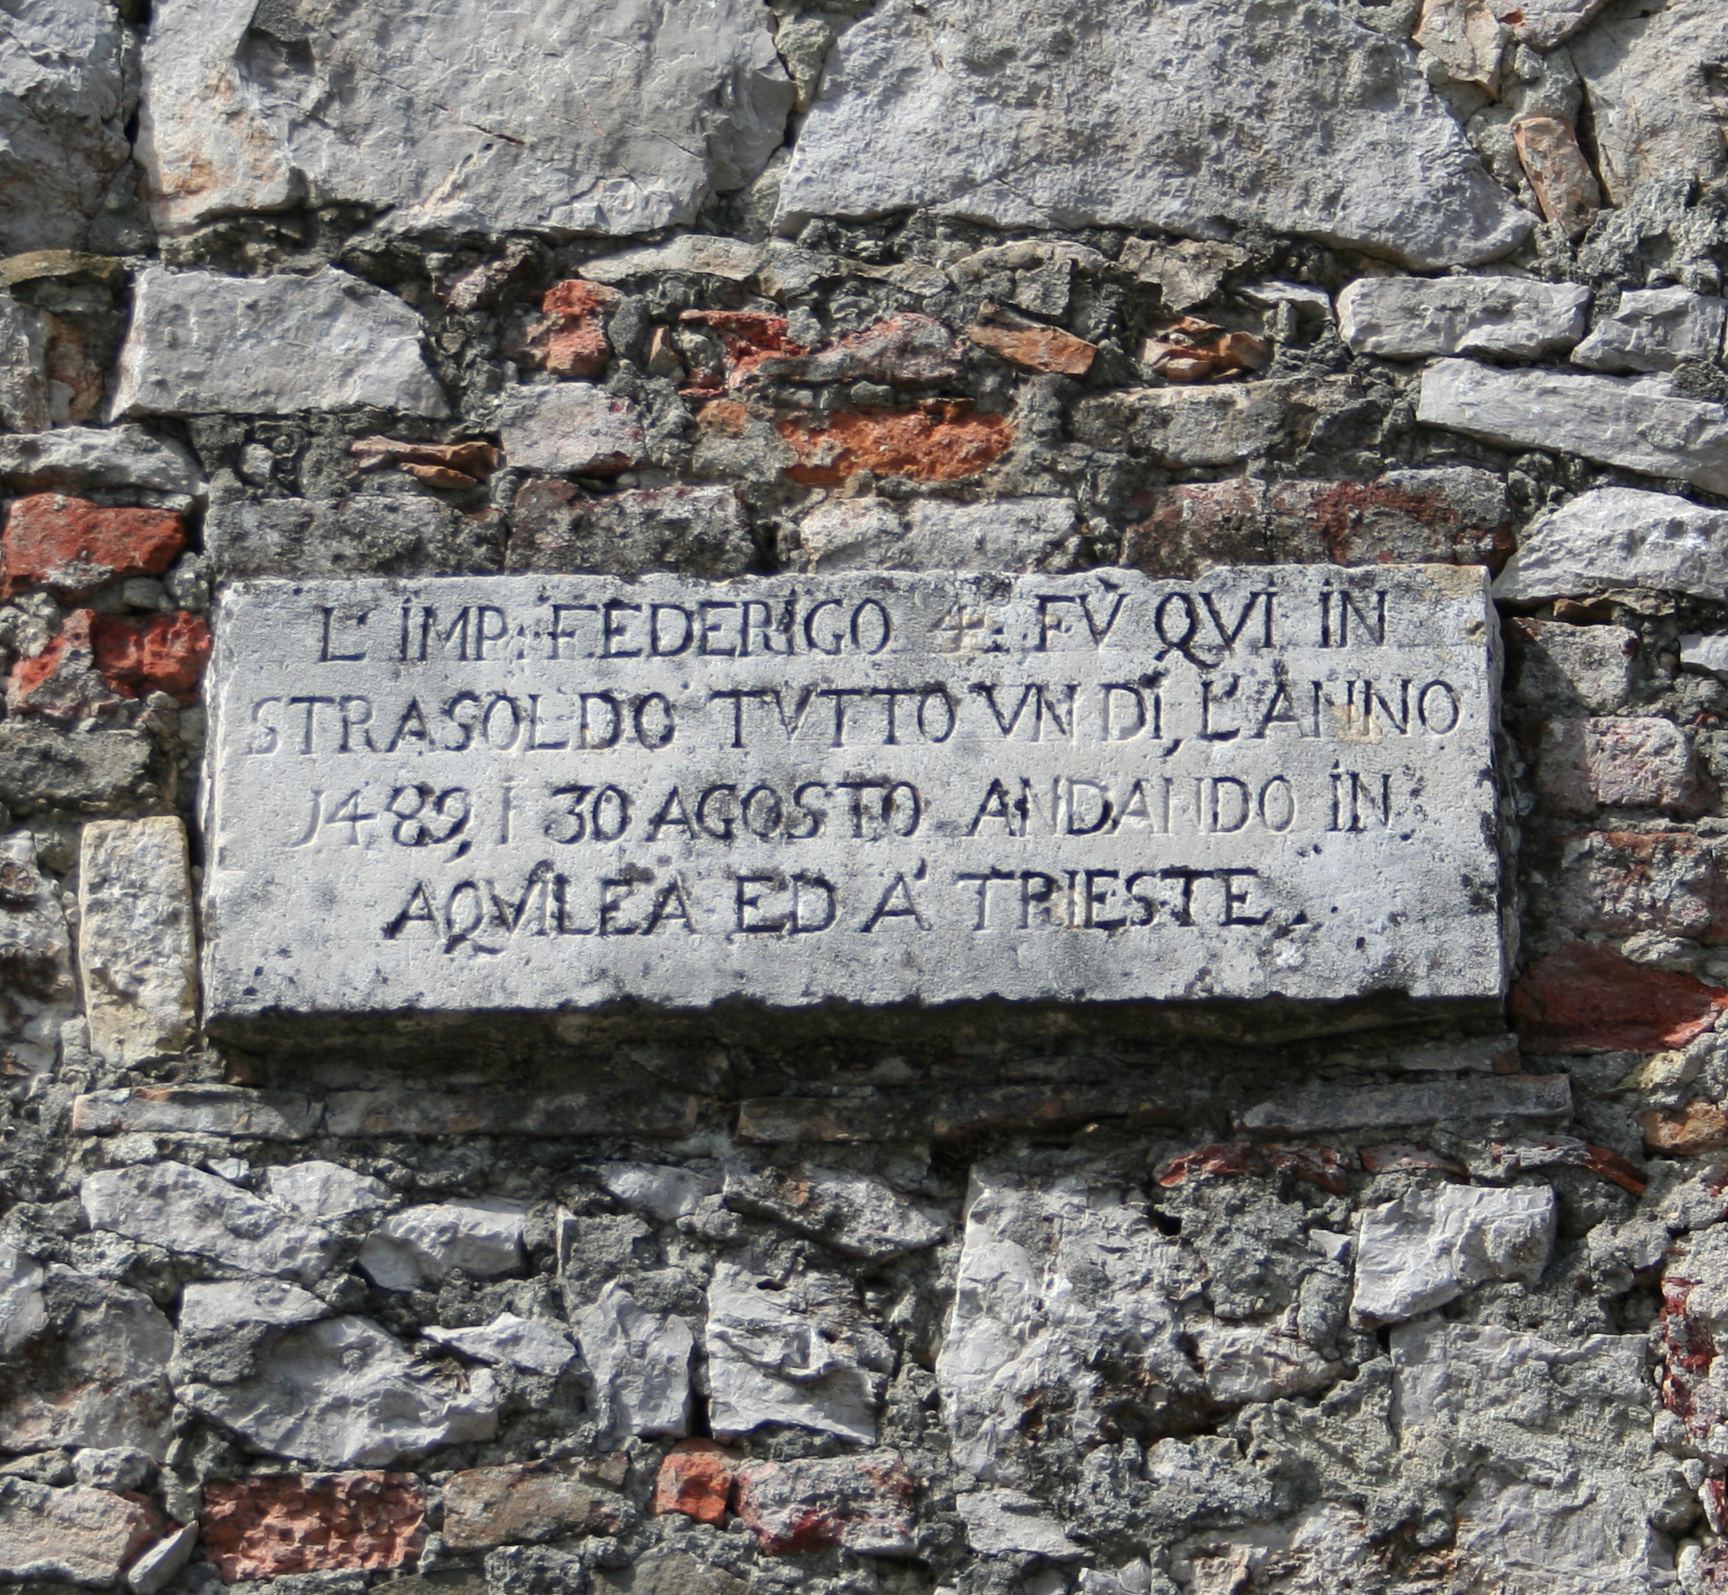 L' IMP. FEDERIGO 4. FV̀ QVI IN
STRASOLDO TVTTO VN DÌ, L'ANNO
1489, I 30 AGOSTO ANDANDO IN
AQVILEA ED A' TRIESTE.